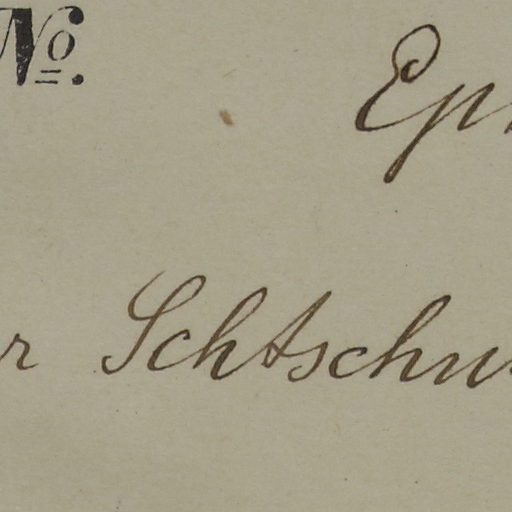 No. Ep
r Schtschu